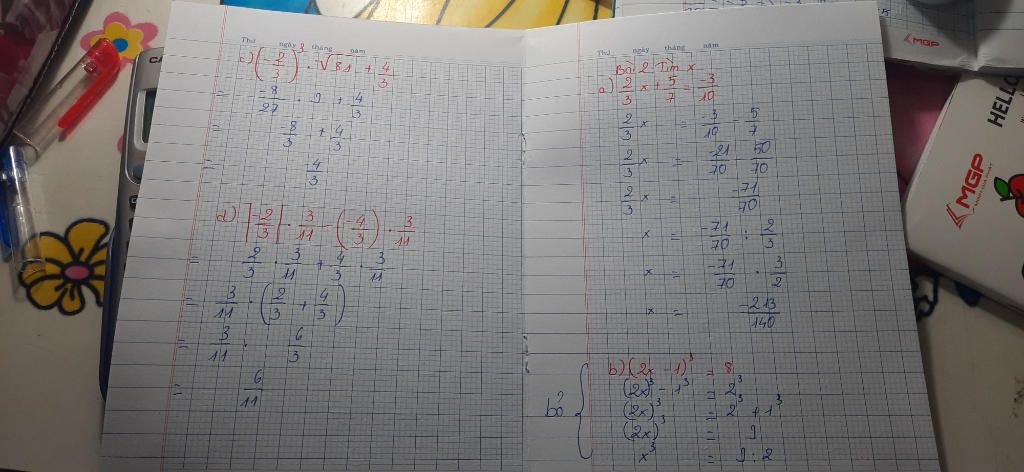 Thứ ngày tháng năm
c) (-2/3)³ . √81 + 4/3
= -8/27 . 9 + 4/3
= -8/3 + 4/3
= -4/3
d) |-2/3| . 3/11 - (-4/3) . 3/11
= 2/3 . 3/11 + 4/3 . 3/11
= 3/11 . (2/3 + 4/3)
= 3/11 . 6/3
= 6/11
Thứ ngày tháng năm
Bài 2 Tìm x
a) 2/3 x + 5/7 = -3/10
2/3 x = -3/10 - 5/7
2/3 x = -21/70 - 50/70
2/3 x = -71/70
x = -71/70 : 2/3
x = -71/70 . 3/2
x = -213/140
b) (2x - 1)³ = 8
(2x)³ - 1³ = 2³
(2x)³ = 2³ + 1³
(2x)³ = 9
x³ = 9 : 2
bỏ
MGP
HELLO
MGP